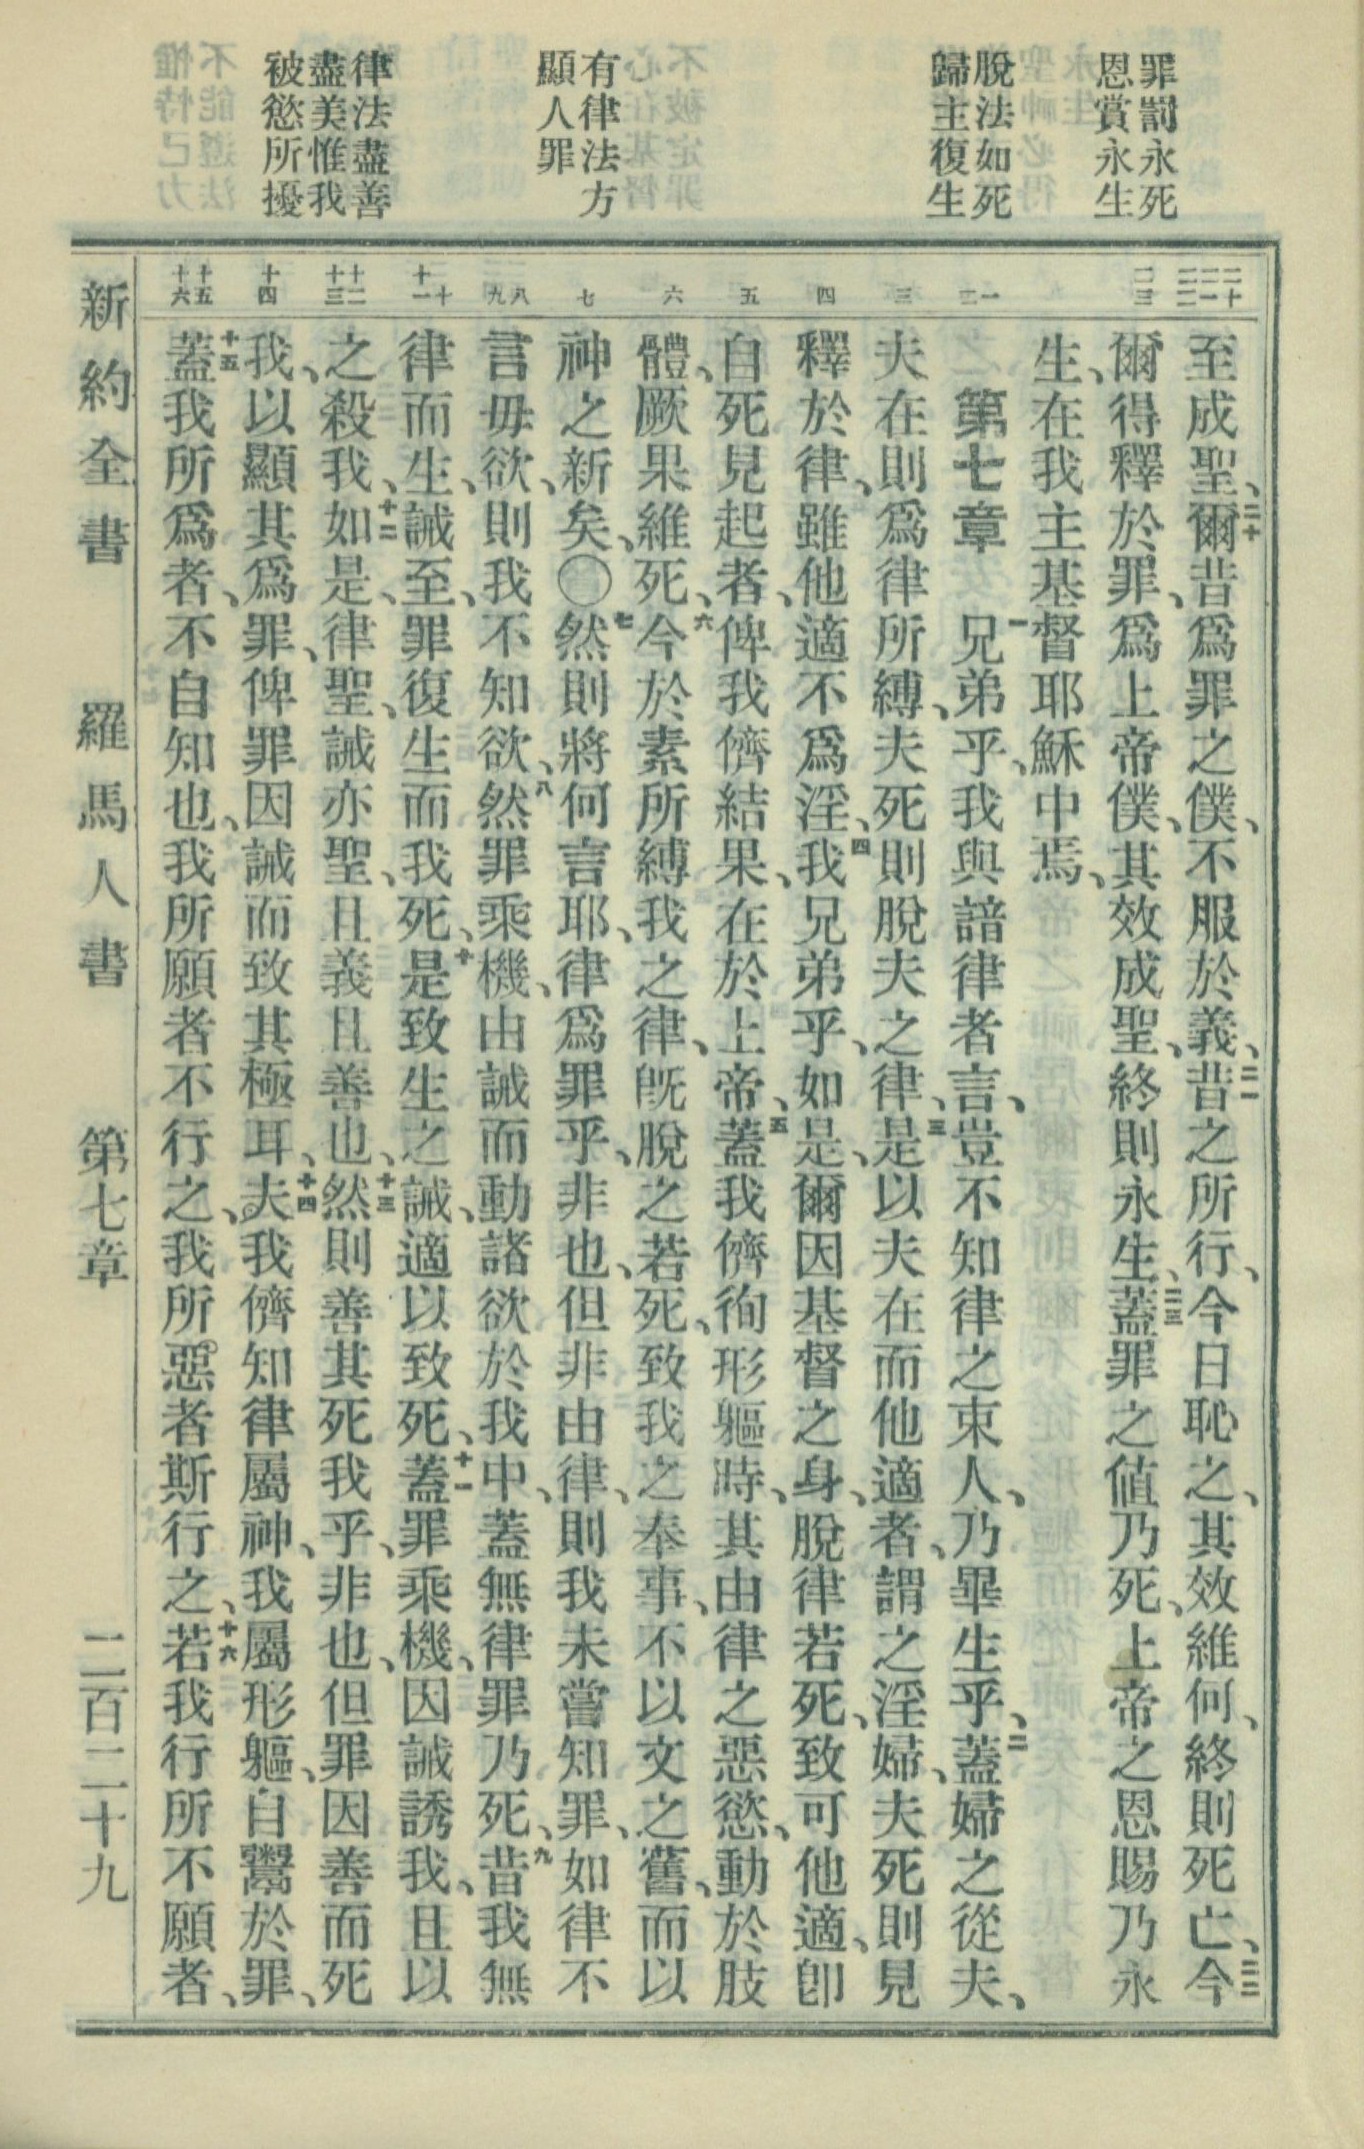 罪罰永死
恩賞永生
脫法如死
歸主復生
有律法方
顯人罪
律法盡善
盡美惟我
被慾所擾
二十
二一
二二
二三
一
二
三
四
五
六
七
八
九
十
十一
十二
十三
十四
十五
十六
至成聖、二十爾昔爲罪之僕、不服於義、二一昔之所行、今日恥之、其效維何、終則死亡、二二今
爾得釋於罪、爲上帝僕、其效成聖、終則永生、二三蓋罪之値乃死、上帝之恩賜乃永
生、在我主基督耶穌中焉、
第七章 一兄弟乎、我與諳律者言、豈不知律之束人、乃畢生乎、二蓋婦之從夫、
夫在則爲律所縛、夫死則脫夫之律、三是以夫在而他適者、謂之淫婦、夫死則見
釋於律、雖他適不爲淫、四我兄弟乎、如是、爾因基督之身、脫律若死、致可他適、卽
自死見起者、俾我儕結果、在於上帝、五蓋我儕徇形軀時、其由律之惡慾、動於肢
體、厥果維死、六今於素所縛我之律、旣脫之若死、致我之奉事、不以文之舊、而以
神之新矣、〇七然則將何言耶、律爲罪乎、非也、但非由律、則我未嘗知罪、如律不
言毋欲、則我不知欲、八然罪乘機、由誡而動諸欲於我中、蓋無律罪乃死、九昔我無
律而生、誡至、罪復生而我死、十是致生之誡、適以致死、十一蓋罪乘機、因誡誘我、且以
之殺我、十二如是、律聖、誡亦聖、且義且善也、十三然則善其死我乎、非也、但罪因善而死
我、以顯其爲罪、俾罪因誡而致其極耳、十四夫我儕知律屬神、我屬形軀、自鬻於罪、
十五蓋我所爲者、不自知也、我所願者不行之、我所惡者斯行之、十六若我行所不願者、
新約全書 羅馬人書 第七章 二百二十九